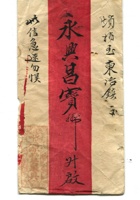 煩梧玉東冶鎮交
永興昌寶號升啟
此信急速勿悮